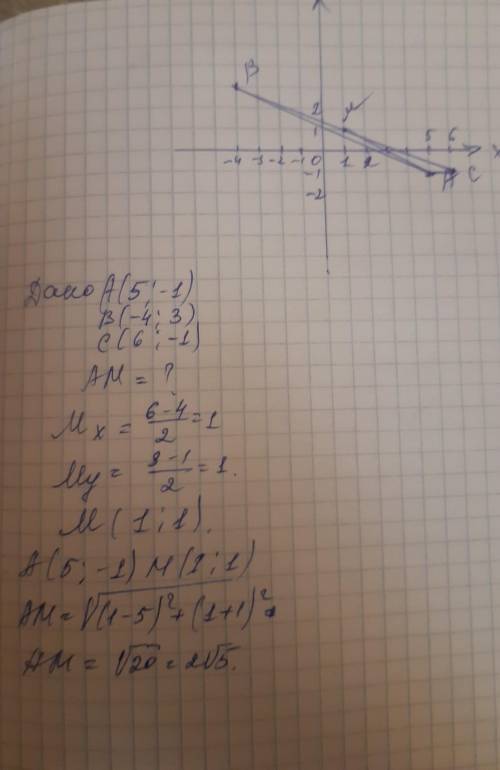 B
M
2
1
5 6
X
-4 -3 -2 -1 0 1 2
A C
-1
-2
Дано A(5;-1)
B(-4; 3)
C(6 ; -1)
AM = ?
Mx = \frac{6-4}{2} = 1
My = \frac{3-1}{2} = 1.
M(1;1).
A(5;-1) M(1;1)
AM = √((1-5)²+(1+1)²) =
AM = √20 = 2√5.